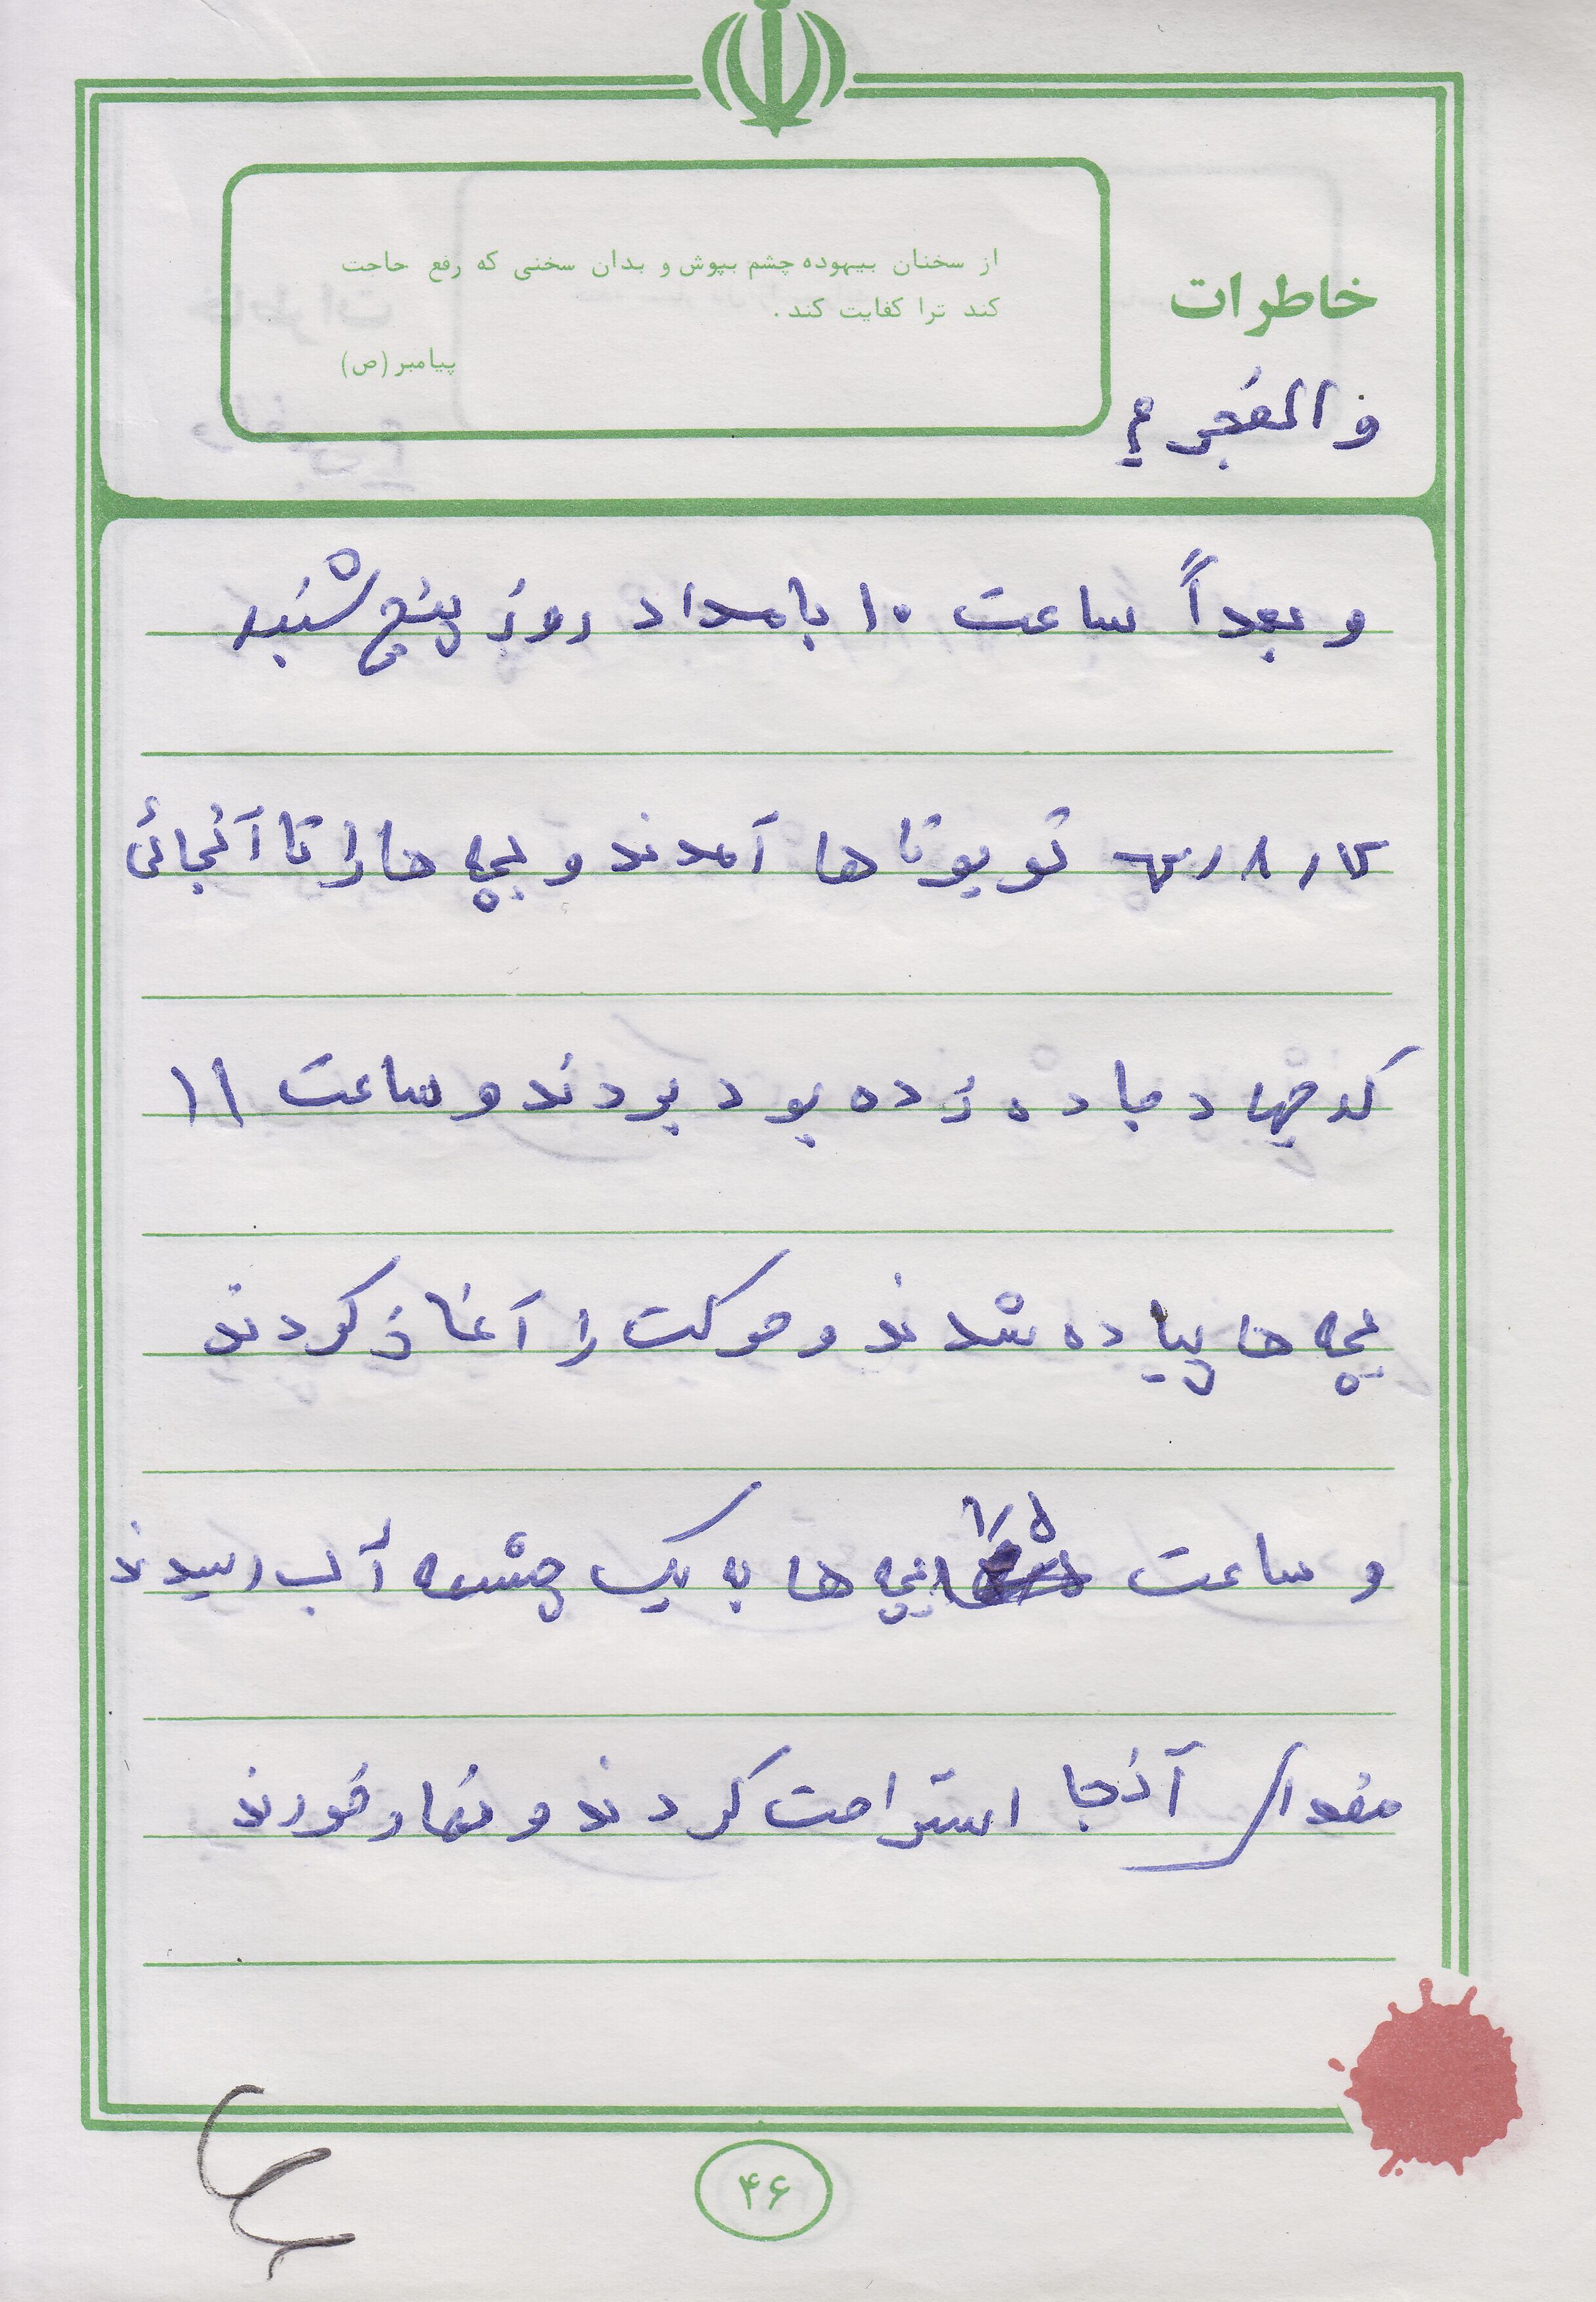 خاطرات
از سخنان بیهوده چشم بپوش و بدان سخنی که رفع حاجت
کند ترا کفایت کند.
پیامبر (ص)
والفجر ۴
و بعداً ساعت ۱۰ بامداد روز پنج شنبه
تویوتا ها آمدند و بچه ها را تا آنجائی
که جهاد جاده زده بود بردند و ساعت ۱۱
بچه ها پیاده شدند و حرکت را آغاز کردند
و ساعت بچه ها به یک چشمه آب رسیدند
مقداری آنجا استراحت کردند و نهار خورند
۴۶